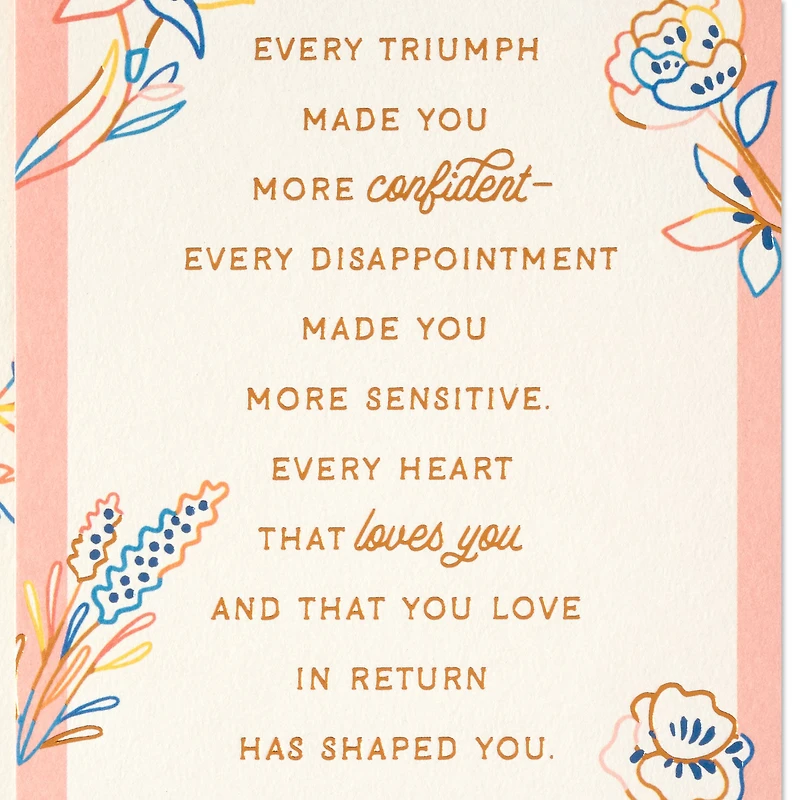 EVERY TRIUMPH
MADE YOU
MORE confident—
EVERY DISAPPOINTMENT
MADE YOU
MORE SENSITIVE.
EVERY HEART
THAT loves you
AND THAT YOU LOVE
IN RETURN
HAS SHAPED YOU.